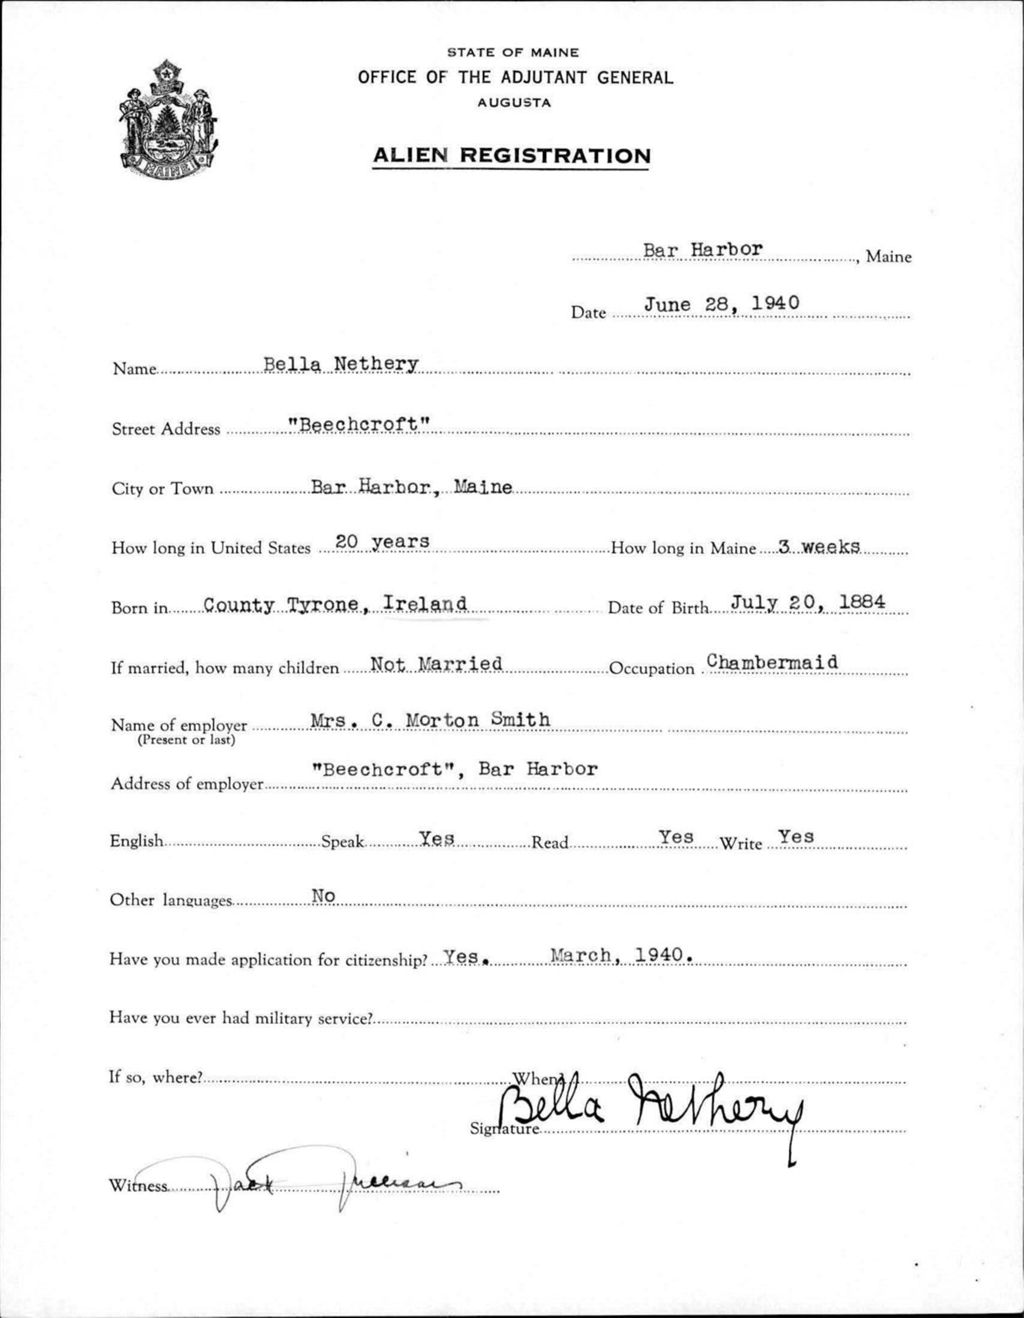 STATE OF MAINE
OFFICE OF THE ADJUTANT GENERAL
AUGUSTA
ALIEN REGISTRATION
MAINE
Bar Harbor, Maine
Date June 28, 1940
Name Bella Nethery
Street Address "Beechcroft"
City or Town Bar Harbor, Maine
How long in United States 20 years How long in Maine 3 weeks
Born in County Tyrone, Ireland Date of Birth July 20, 1884
If married, how many children Not Married Occupation Chambermaid
Name of employer Mrs. C. Morton Smith
(Present or last)
Address of employer "Beechcroft", Bar Harbor
English Speak Yes Read Yes Write Yes
Other languages No
Have you made application for citizenship? Yes. March, 1940.
Have you ever had military service?
If so, where? When?
Signature Bella Nethery
Witness Jack